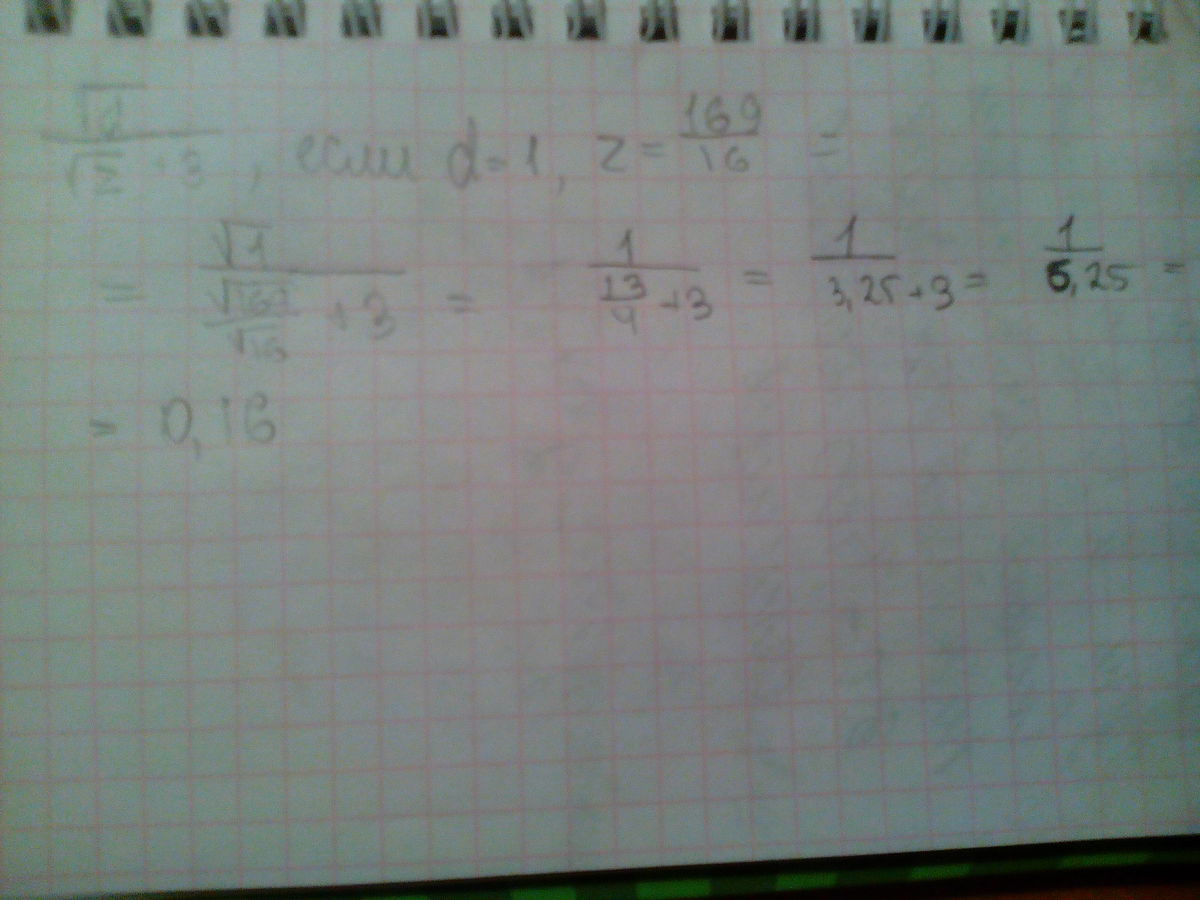 √d / (√z + 3), если d=1, z = 169/16 =
= √1 / (√169/√16 + 3) = 1 / (13/4 + 3) = 1 / (3,25 + 3) = 1 / 6,25 =
= 0,16